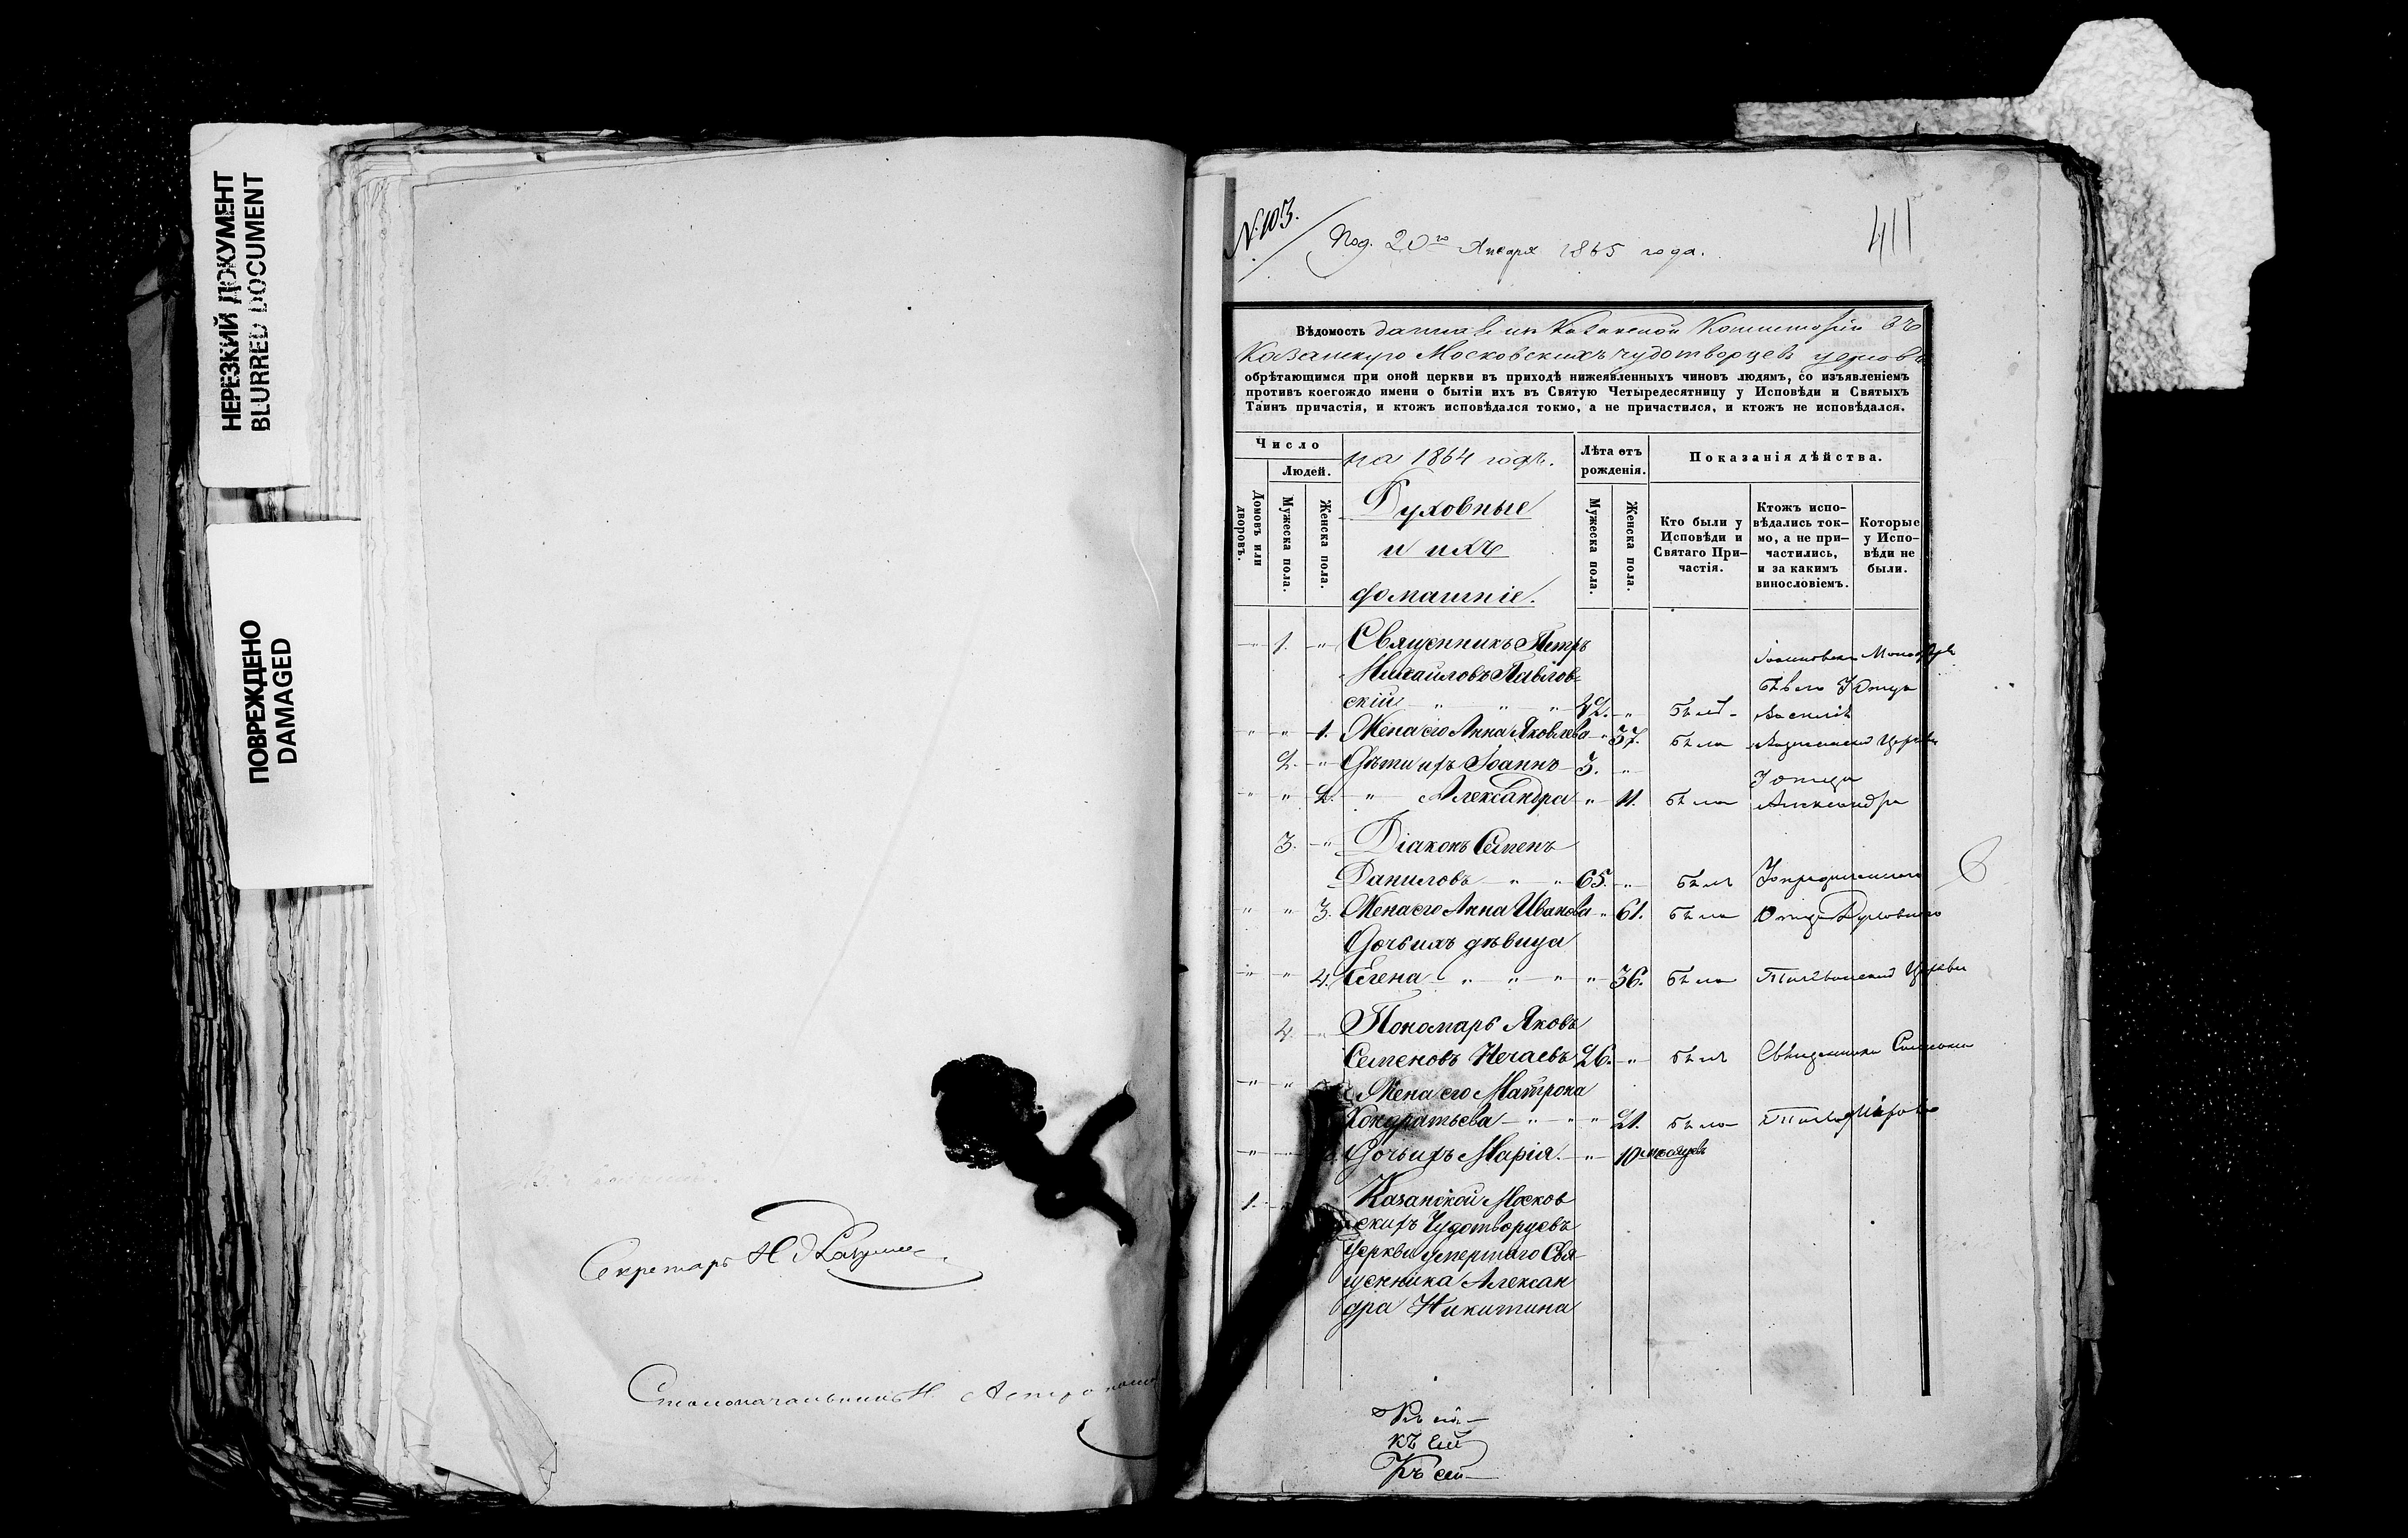 НЕРЕЗКИЙ ДОКУМЕНТ
BLURRED DOCUMENT
ПОВРЕЖДЕНО
DAMAGED
Секретарь Н
Столоначальникъ Н
N. 103.
Под. 20го Января 1865 года.
411
Вѣдомость данная изъ Казанской Консисторіи въ
Казанскую Московскихъ чудотворцевъ церковь
обрѣтающимся при оной церкви въ приходѣ нижеявленныхъ чиновъ людямъ, со изъявленіемъ
противъ коегождо имени о бытіи ихъ въ Святую Четыредесятницу у Исповѣди и Святыхъ
Таинъ причастія, и ктожъ исповѣдался токмо, а не причастился, и ктожъ не исповѣдался.
Число
Людей.
Домовъ или дворовъ.
Мужеска пола.
Женска пола.
на 1864 годъ.
Духовные
и ихъ
домашніе.
Лѣта отъ рожденія.
Мужеска пола.
Женска пола.
Показанія дѣйства.
Кто были у Исповѣди и Святаго При-частія.
Ктожъ испо-вѣдались ток-мо, а не при-частились, и за какимъ винословіемъ.
Которые у Испо-вѣди не были.
1. Священникъ Петръ
Михайловъ Павлов-
скій 42. былъ Василія
1. Жена его Анна Яковлева 37. была Церкви
2. Дѣти ихъ Іоаннъ 3.
У отца
2. Александра 11. была Александра
3. Діаконъ Семенъ
Даниловъ 65. былъ
3. Жена его Анна Иванова 61. была Отца
Дочь ихъ дѣвица
4. Елена 36. была Церкви
4. Пономарь Яковъ
Семеновъ Нечаевъ 26. былъ Священника
Жена его Матрона
Кондратьева 21. была
Дочь ихъ Марія. 10 мѣсяцевъ
1. Казанской Москов
скихъ Чудотворцевъ
церкви умершаго Свя-
щенника Алексан
дра Никитина
Къ сей
къ сей
Къ сей